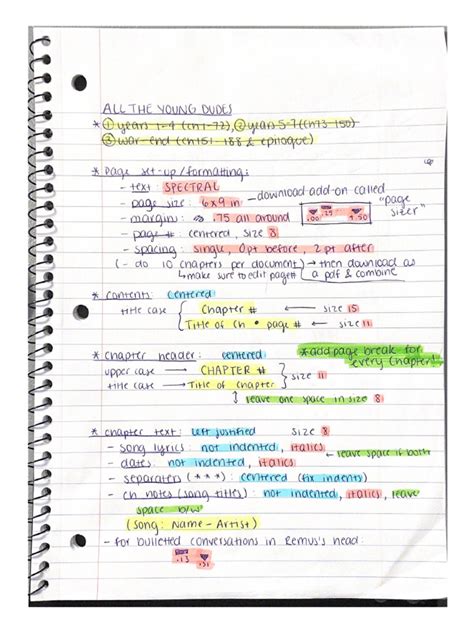 ALL THE YOUNG DUDES
* ① years 1-4 (ch 1-72), ② years 5-7 (ch 73-150)
③ war-end (ch 151-188 & epilogue)
* Page set-up/formatting:
- text SPECTRAL
- page size: 6x9 in — download add-on called "page sizer"
- margin: .75 all around
- page #: centered, size 8
- spacing: single, 0pt before, 2pt after
(- do 10 chapters per document) → then download as a pdf & combine
↳ make sure to edit page#
* contents: centered
title case { Chapter # ← size 15
Title of Ch • page # ← size 11
* chapter header: centered *add page break for every chapter!
upper case → CHAPTER # } size 11
title case → Title of Chapter
↳ leave one space in size 8
* chapter text: left justified size 8
- song lyrics: not indented, italics ← leave space if both
- dates: not indented, italics
- separaters (***): centered (fix indents)
- ch notes (song titles): not indented, italics, leave
space b/w
(Song: Name - Artist)
- for bulletted conversations in Remus's head:
.13 .31